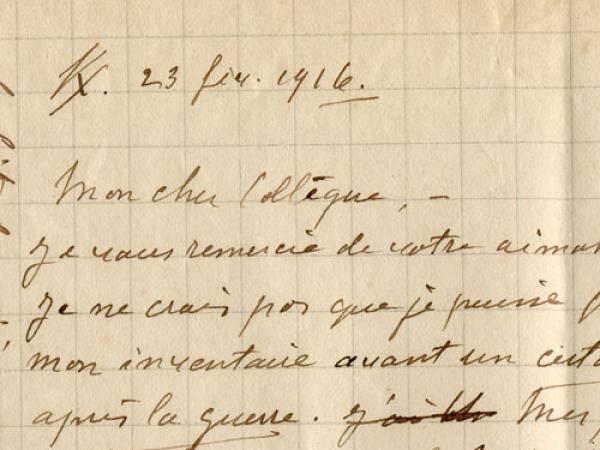 23 fév. 1916.
Mon cher Collègue, –
Je vous remercie de votre
Je ne crois pas que je puisse
mon inventaire avant un
après la guerre.